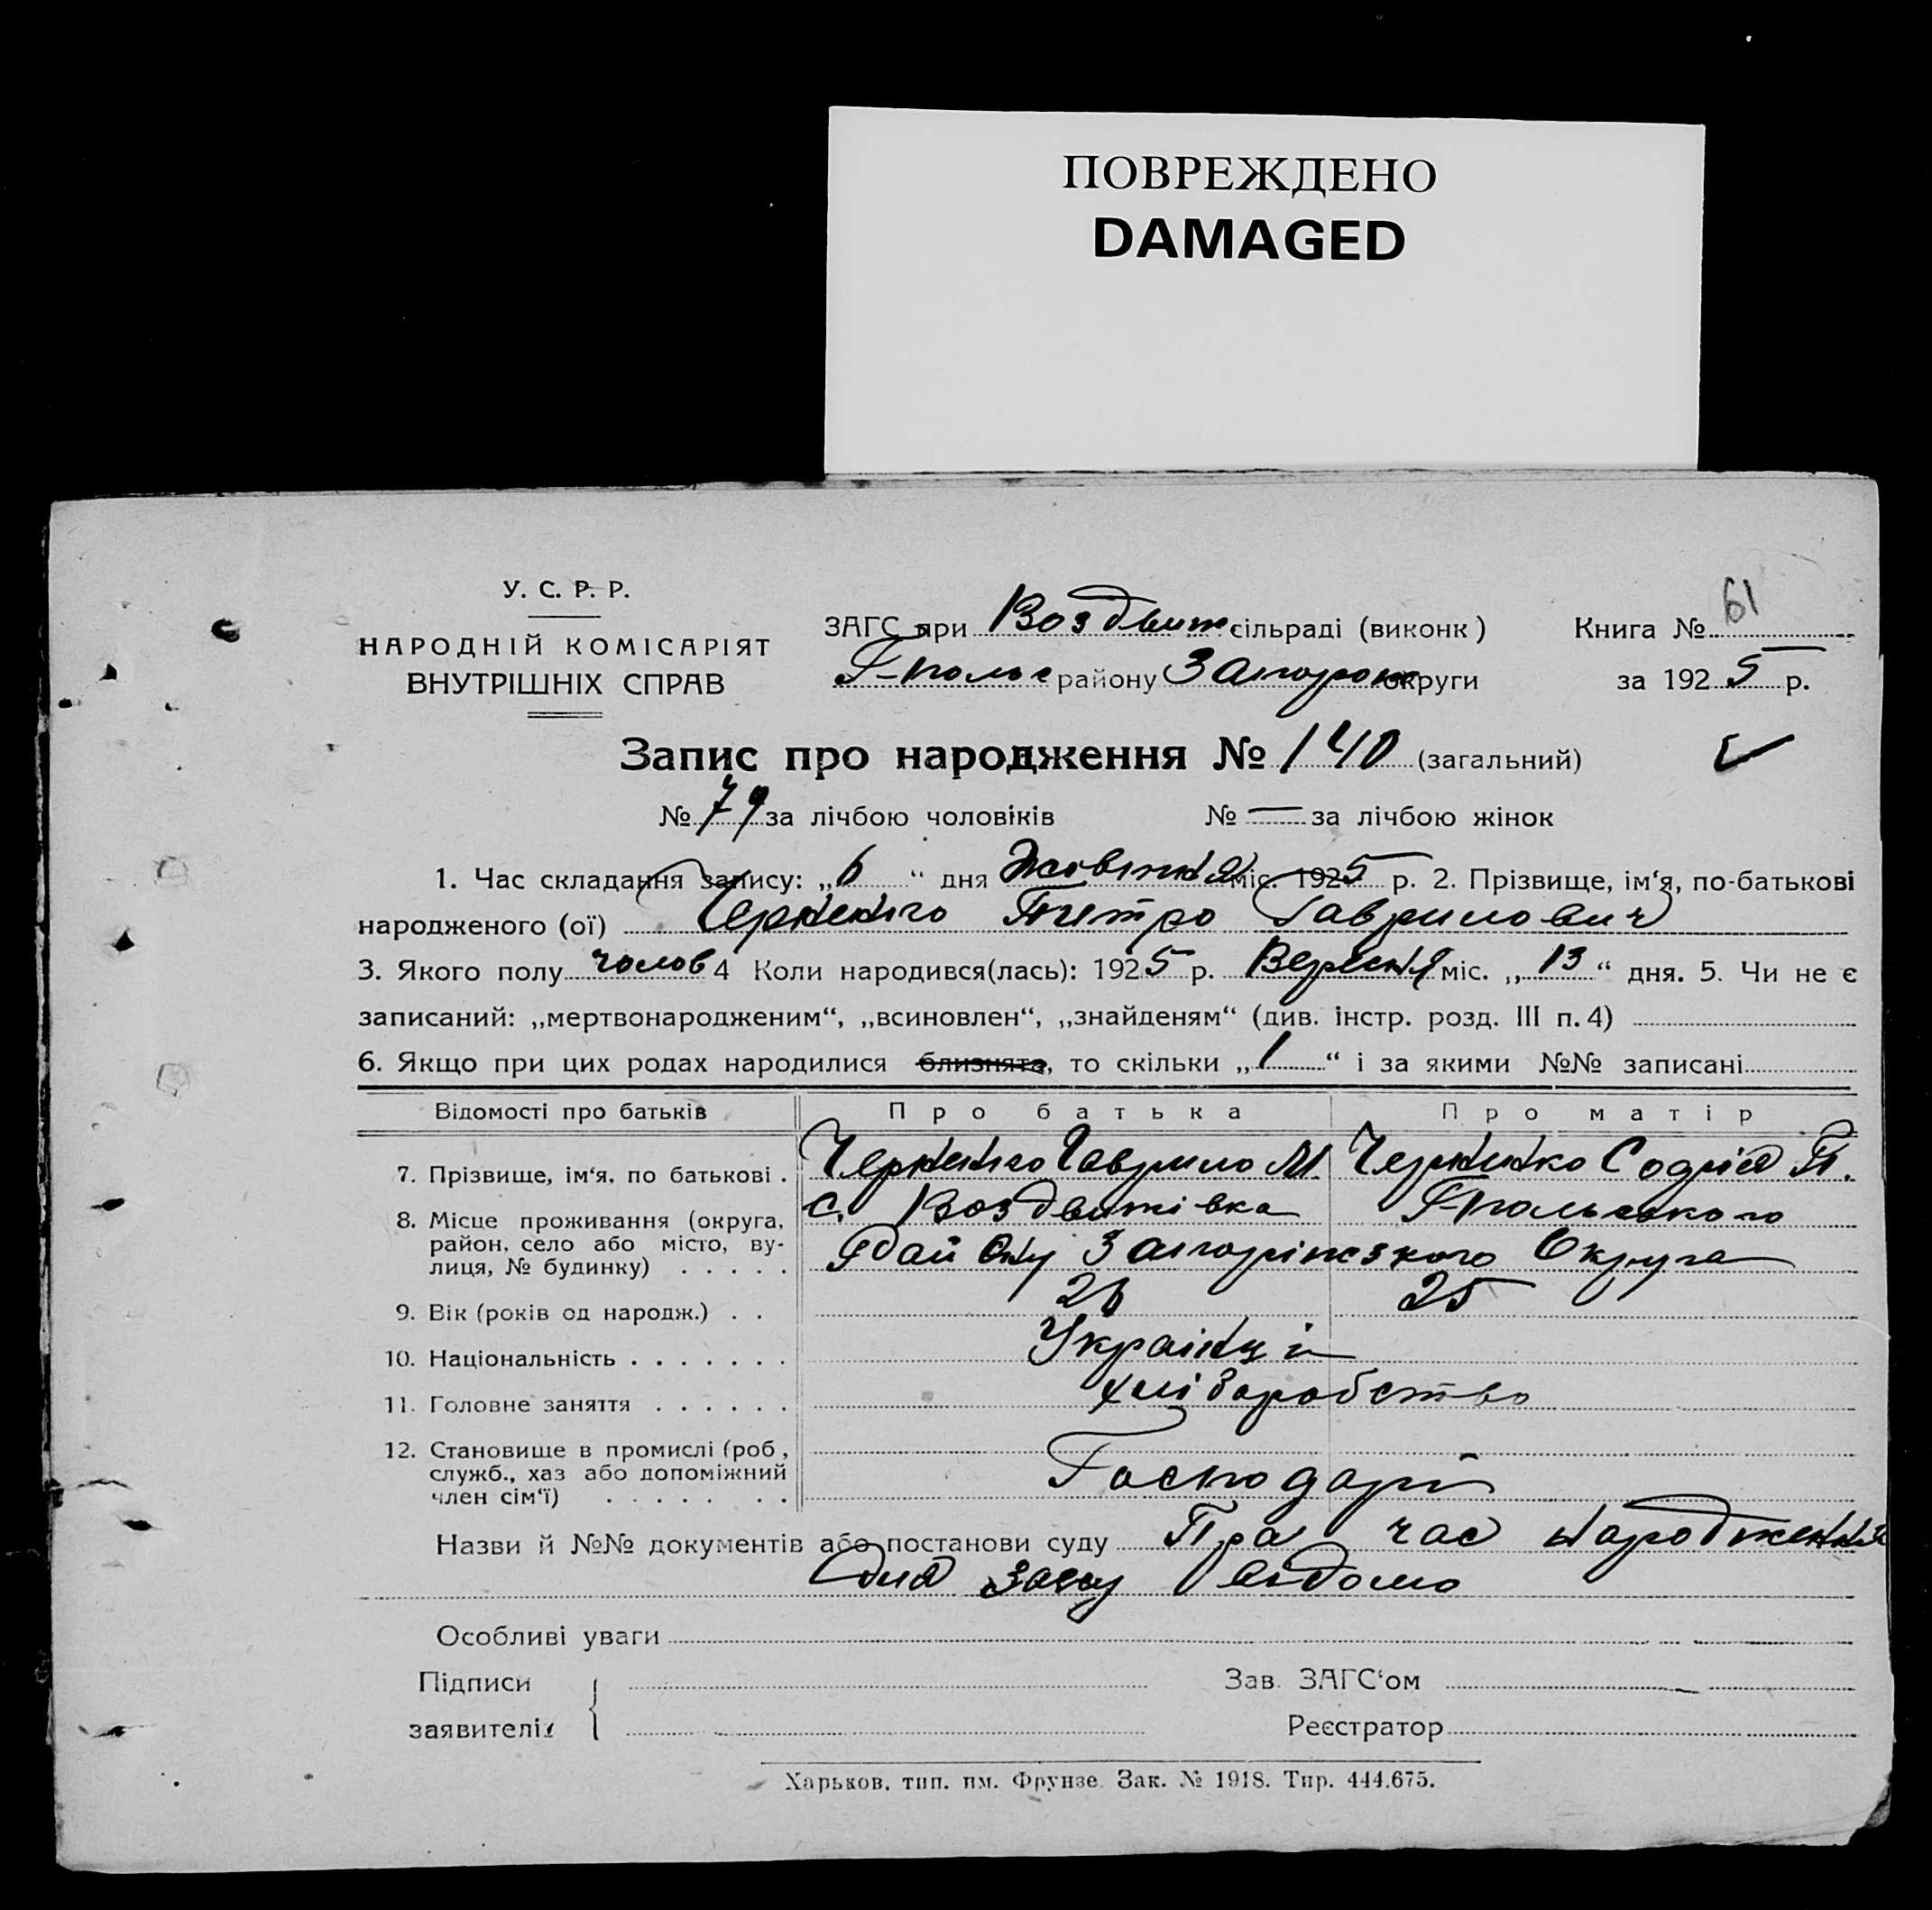 ПОВРЕЖДЕНО
DAMAGED
У. С. Р. Р.
НАРОДНІЙ КОМІСАРІЯТ
ВНУТРІШНІХ СПРАВ
ЗАГС при Воздвиж сільраді (виконк)
Г-польс району Запорож округи
Книга №
61
за 1925 р.
Запис про народження № 140 (загальний)
№ 79 за лічбою чоловіків № — за лічбою жінок
1. Час складання запису: „6“ дня Жовтня міс. 1925 р. 2. Прізвище, ім‘я, по-батькові
народженого (ої) Черненко Петро Гаврилович
3. Якого полу чолов 4 Коли народився(лась): 1925 р. Вересня міс. „13“ дня. 5. Чи не є
записаний: „мертвонародженим“, „всиновлен“, „знайденям“ (див. інстр. розд. III п. 4)
6. Якщо при цих родах народилися близнята, то скільки „1“ і за якими №№ записані
Відомості про батьків Про батька Про матір
7. Прізвище, ім‘я, по батькові . Черненко Гаврило М. Черненко Софія П.
8. Місце проживання (округа, с. Воздвижівка Г-польського
район, село або місто, ву-
лиця, № будинку) . . . . . Запоріжского Округа
9. Вік (років од народж.) . . 26 25
10. Національність . . . . . . . Українці
11. Головне заняття . . . . . . хліборобство
12. Становище в промислі (роб.,
служб., хаз або допоміжний Господарі
член сім‘ї) . . . . . . .
Назви й №№ документів або постанови суду Пра час народження
для Загсу відомо
Особливі уваги
Підписи
заявителів
Зав. ЗАГС‘ом
Реєстратор
Харьков, тип. им. Фрунзе. Зак. № 1918. Тир. 444.675.